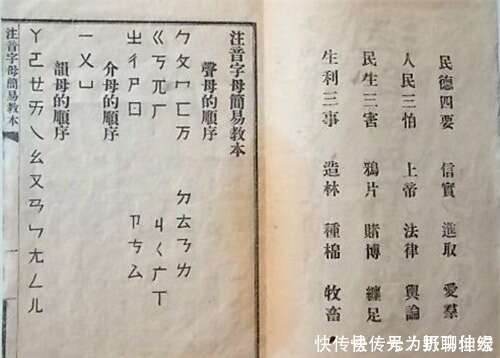 民德四要 信實 進取 愛羣
人民三怕 上帝 法律 輿論
民生三害 鴉片 賭博 纏足
生利三事 造林 種棉 牧畜
注音字母簡易教本
聲母的順序
ㄅㄆㄇㄈㄪ ㄉㄊㄋㄌ
ㄍㄎㄫㄏ ㄐㄑㄬㄒ
ㄓㄔㄕㄖ ㄗㄘㄙ
介母的順序
ㄧㄨㄩ
韻母的順序
ㄚㄛㄝㄞㄟㄠㄡㄢㄣㄤㄥㄦ
注音字母簡易教本
一